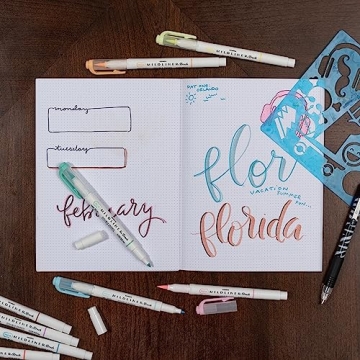 MILDLINER Brush
MILDLINER Brush
monday
tuesday
february
MILDLINER
DAY ONE
ORLANDO
flor
VACATION
SUMMER
FUN...
florida
MILDLINER Brush
MILDLINER Brush